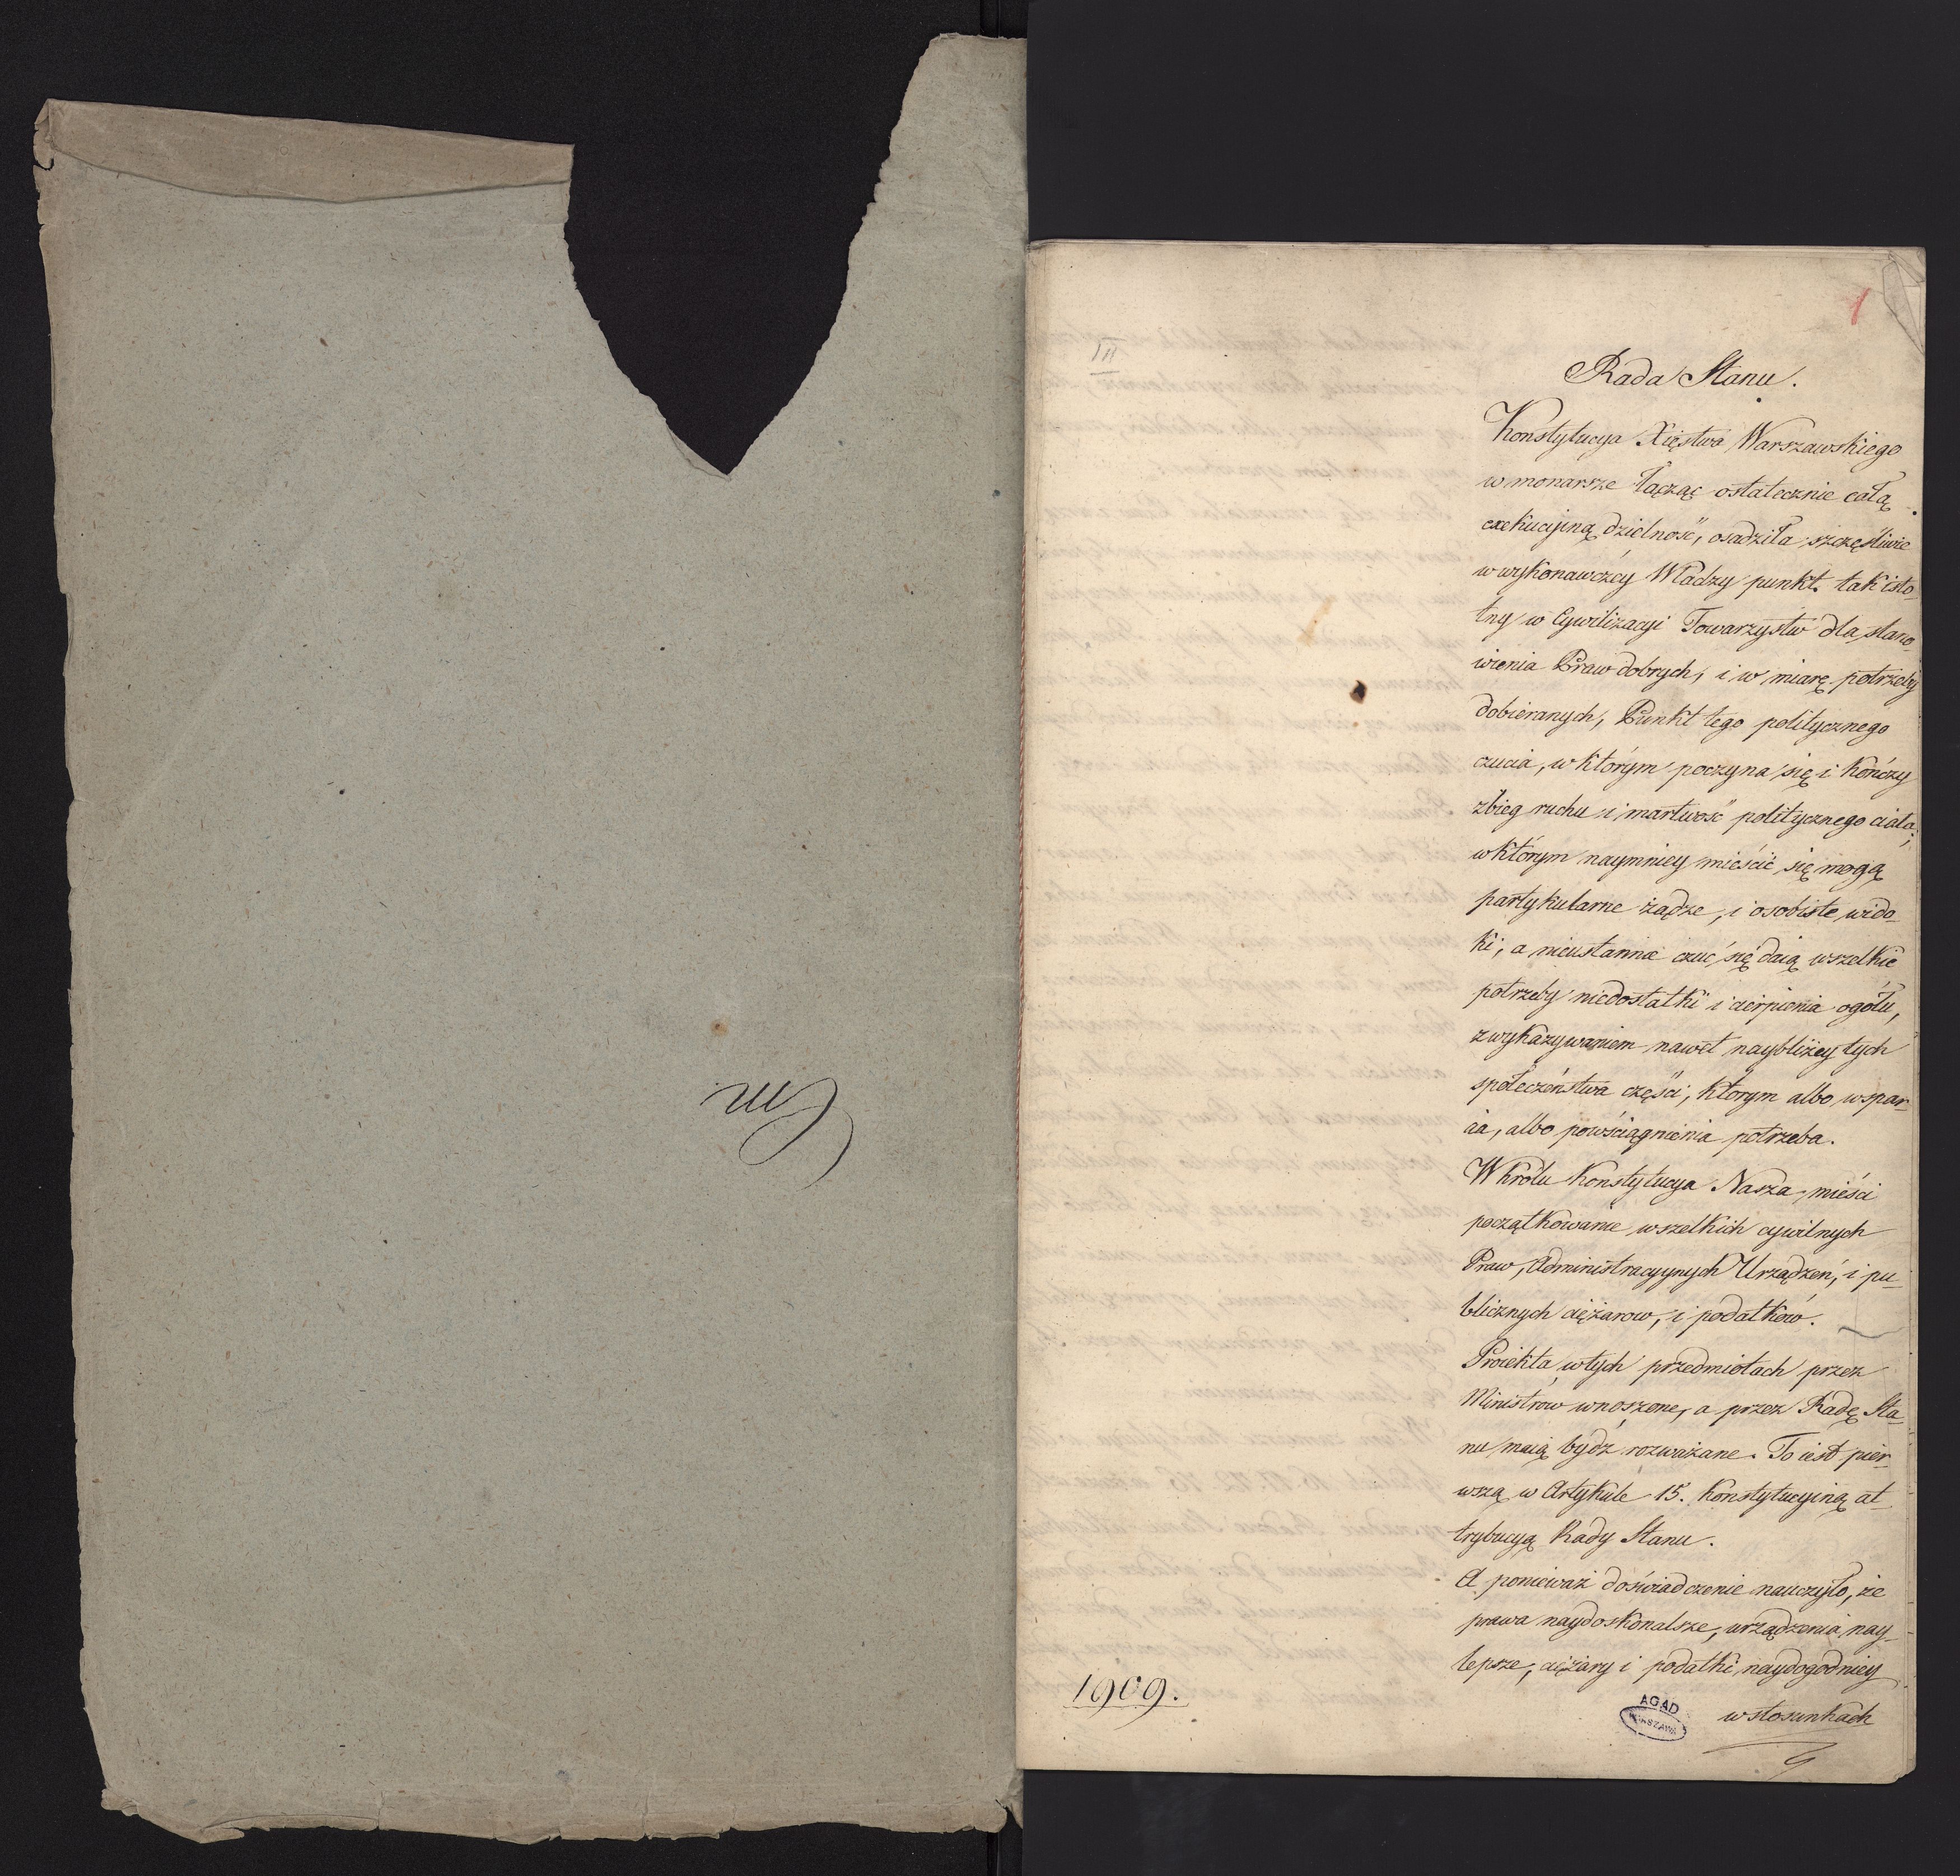 1
III
Rada Stanu.
Konstytucya Xięstwa Warszawskiego
w monarsze łącząc ostatecznie całą
exekucyiną dzielność, osadziła szczęśliwie
w wykonawczéy Władzy punkt tak isto-
tny w Cywilizacyi Towarzystw dla stano-
wienia Praw dobrych, i w miarę potrzeby
dobieranych, Punkt tego politycznego
czucia, w którym poczyna się i kończy
zbieg ruchu i martwość politycznego ciała;
w którym naymniey mieścić się mogą
partykularne żądze, i osobiste wido-
ki; a nieustannie czuć się daią wszelkie
potrzeby niedostatki i cierpienia ogółu,
z wykazywaniem nawet naybliżey tych
społeczeństwa części, którym albo wspar-
cia, albo powściągnienia potrzeba.
W królu Konstytucya Nasza mieści
początkowanie wszelkich cywilnych
Praw, Administracyynych Urządzeń, i pu-
blicznych ciężarow, i podatków.
Proiekta w tych przedmiotach przez
Ministrów wnoszone, a przez Radę Sta-
nu maią bydź rozważane. To iest pier-
wszą w Artykule 15. Konstytucyiną at-
trybucyą Rady Stanu.
A ponieważ doświadczenie nauczyło, że
prawa naydoskonalsze, urządzenia nay-
lepsze, ciężary i podatki naydogodniey
w stosunkach
1909.
AGAD
WARSZAWA